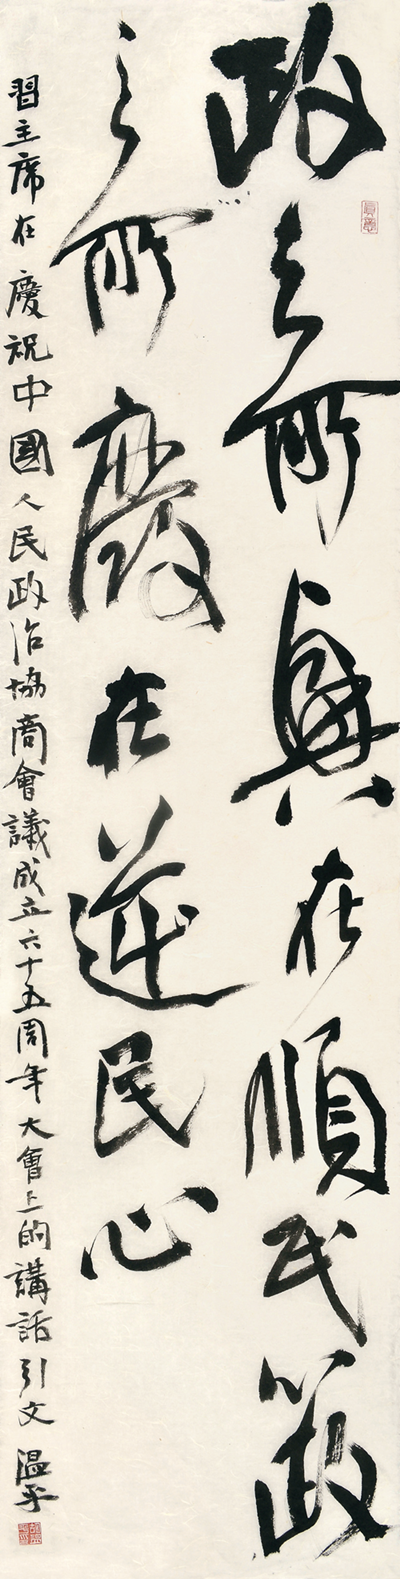 政之所興在順民心政
之所廢在逆民心
習主席在慶祝中國人民政治協商會議成立六十五周年大會上的講話引文 温